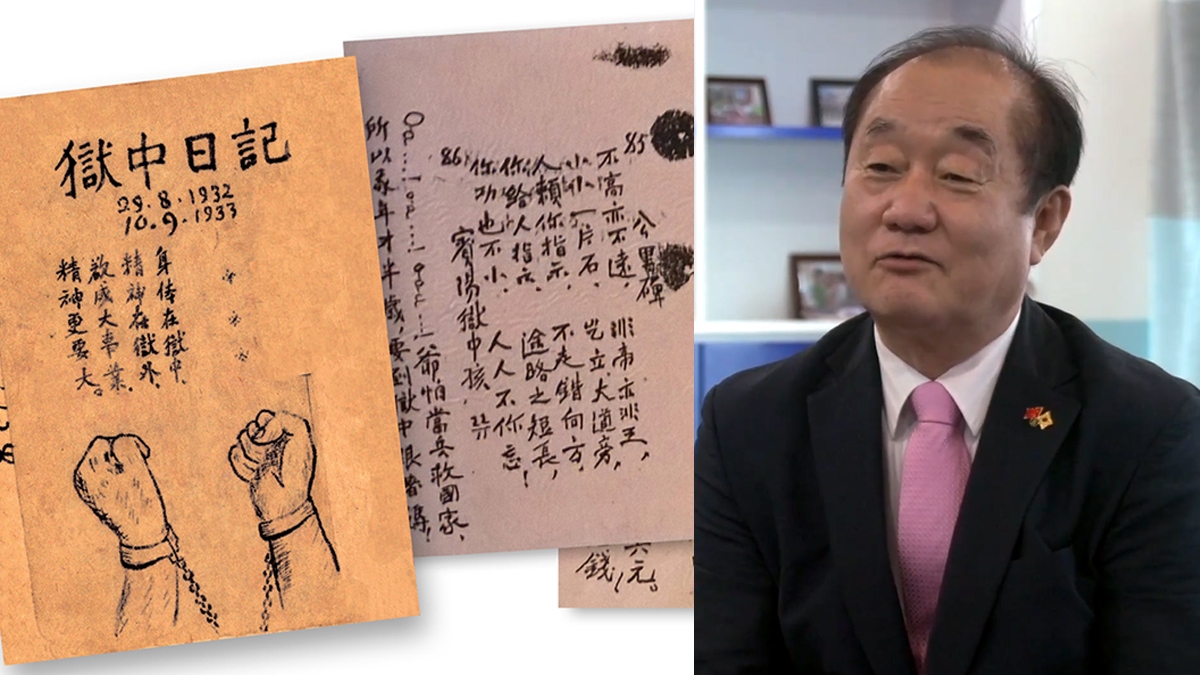 獄中日記
29.8.1932
10.9.1933
身体在獄中,
精神在獄外,
欲成大事業,
精神更要大。
85
公里碑
不高亦不遠, 非帝亦非王,
小小一片石, 屹立大道旁,
人賴你指示, 不走錯向方,
你給人指示, 途路之短長,
你功也不小, 人人不你忘.
86
賓陽獄中孩
Oa...! Oa...! Oa...! 爺怕當兵救國家,
所以我年才半歲, 要到獄中跟著媽!
元。
錢,